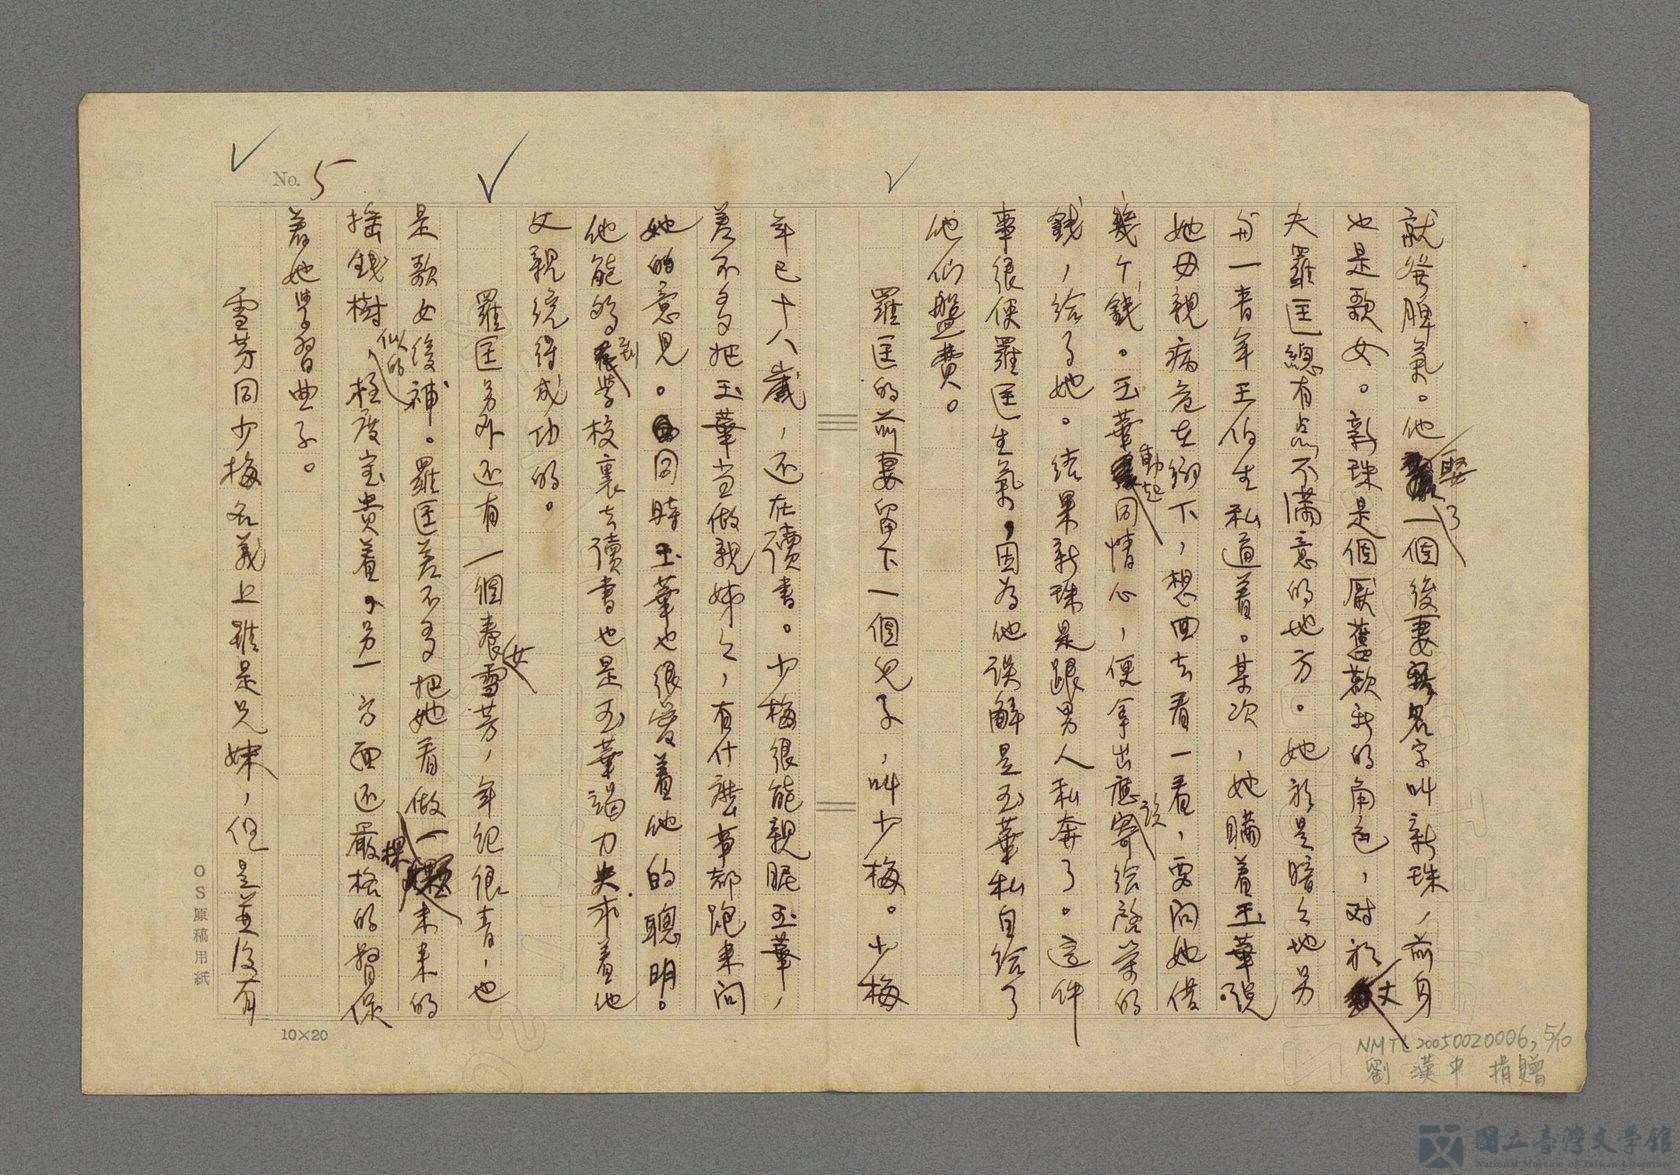 就發脾氣。他娶了一個後妻名字叫新珠，前身
也是歌女。新珠是個厭舊歡新的角色，对於丈
夫羅匡總有点不滿意的地方。她於是暗々地另
有一青年王伯生私通着。某次，她瞞着玉華說
她母親病危在鄉下，想回去看一看，要向她借
幾个錢。玉華動起同情心，便拿出應該寄給啓榮的
錢，給了她。結果新珠是跟男人私奔了。這件
事很使羅匡生氣，因為他误解是玉華私自給了
他们盤費。
羅匡的前妻留下一個兒子，叫少梅。少梅
年已十八歲，还在讀書。少梅很能親昵玉華，
差不多把玉華当做親姊々，有什麽事都跑来问
她的意見。同時玉華也很愛着他的聰明。
他能的到学校裏去讀書也是玉華竭力央求着他
父親纔得成功的。
羅匡另外还有一個養女雪芳，年纪很青，也
是歌女後補。羅匡差不多把她看做一棵未来的
搖錢樹似的極度宝贵着，另一方面还嚴格的督促
着她学習曲子。
雪芳同少梅名義上雖是兄妹，但是並没有
No. 5
OS原稿用紙
10×20
NMTL20050020006, 5/10
劉漢中 捐贈
國立臺灣文學館
National Museum of Taiwan Literature